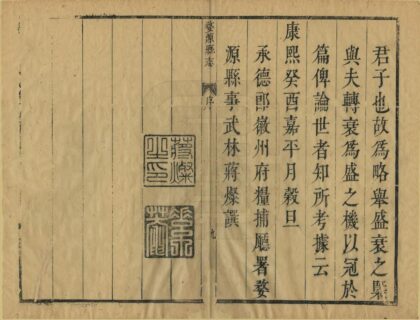 君子也故爲略舉盛衰之槩
與夫轉衰爲盛之機以冠於
篇俾論世者知所考據云
康熙癸酉嘉平月穀旦
承德郎徽州府糧捕廳署婺
源縣事武林蔣燦譔
蔣燦之印
婺源縣志
序
九